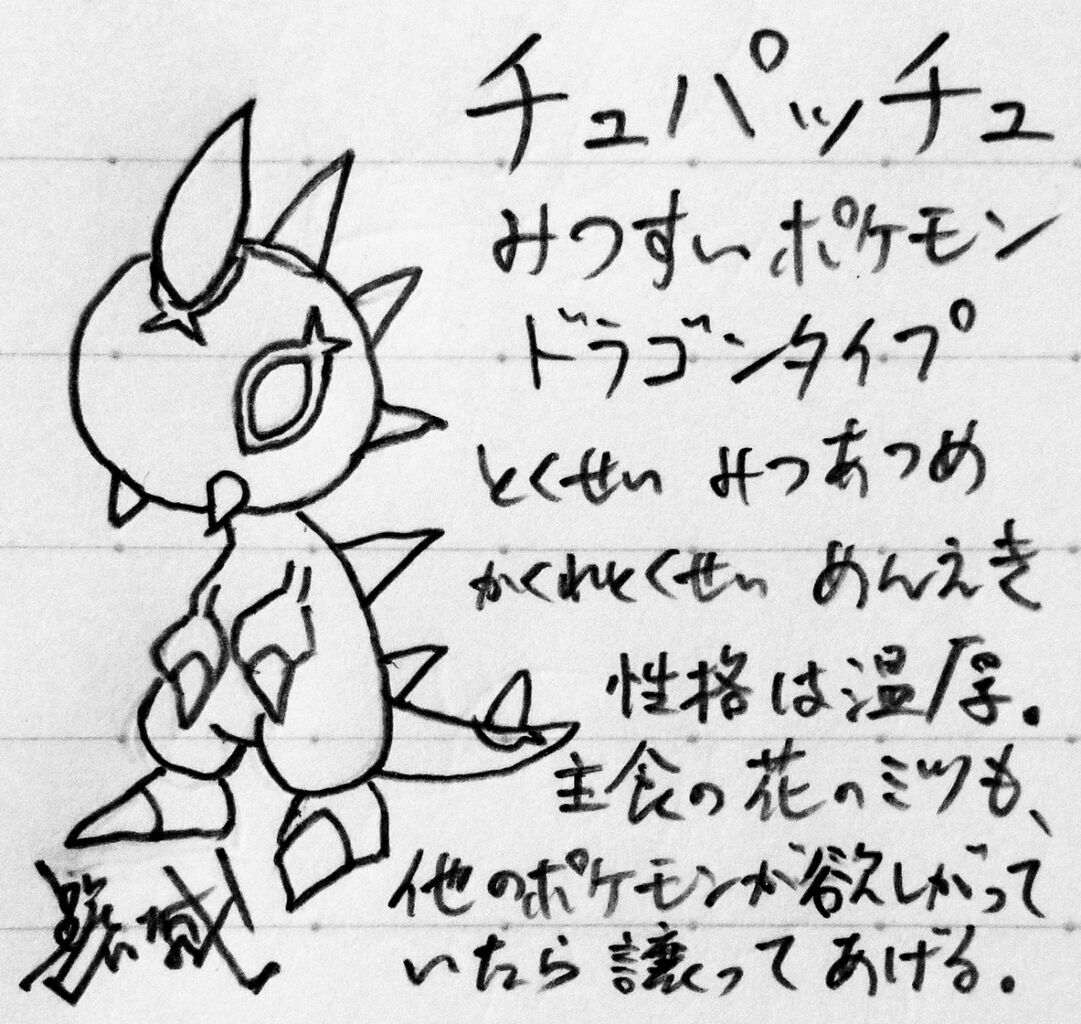 チュパッチュ
みつすいポケモン
ドラゴンタイプ
とくせい みつあつめ
かくれとくせい めんえき
性格は温厚。
主食の花のミツも、
他のポケモンが欲しがって
いたら譲ってあげる。